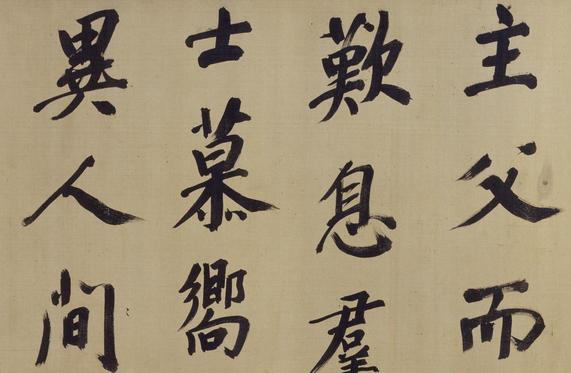 主父而
歎息羣
士慕嚮
異人間